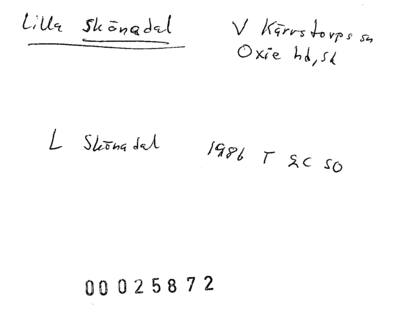 Lilla Skönadal V Kärrstorps sn
Oxie hd, Sk
L Skönadal 1986 T 2C SO
00025872